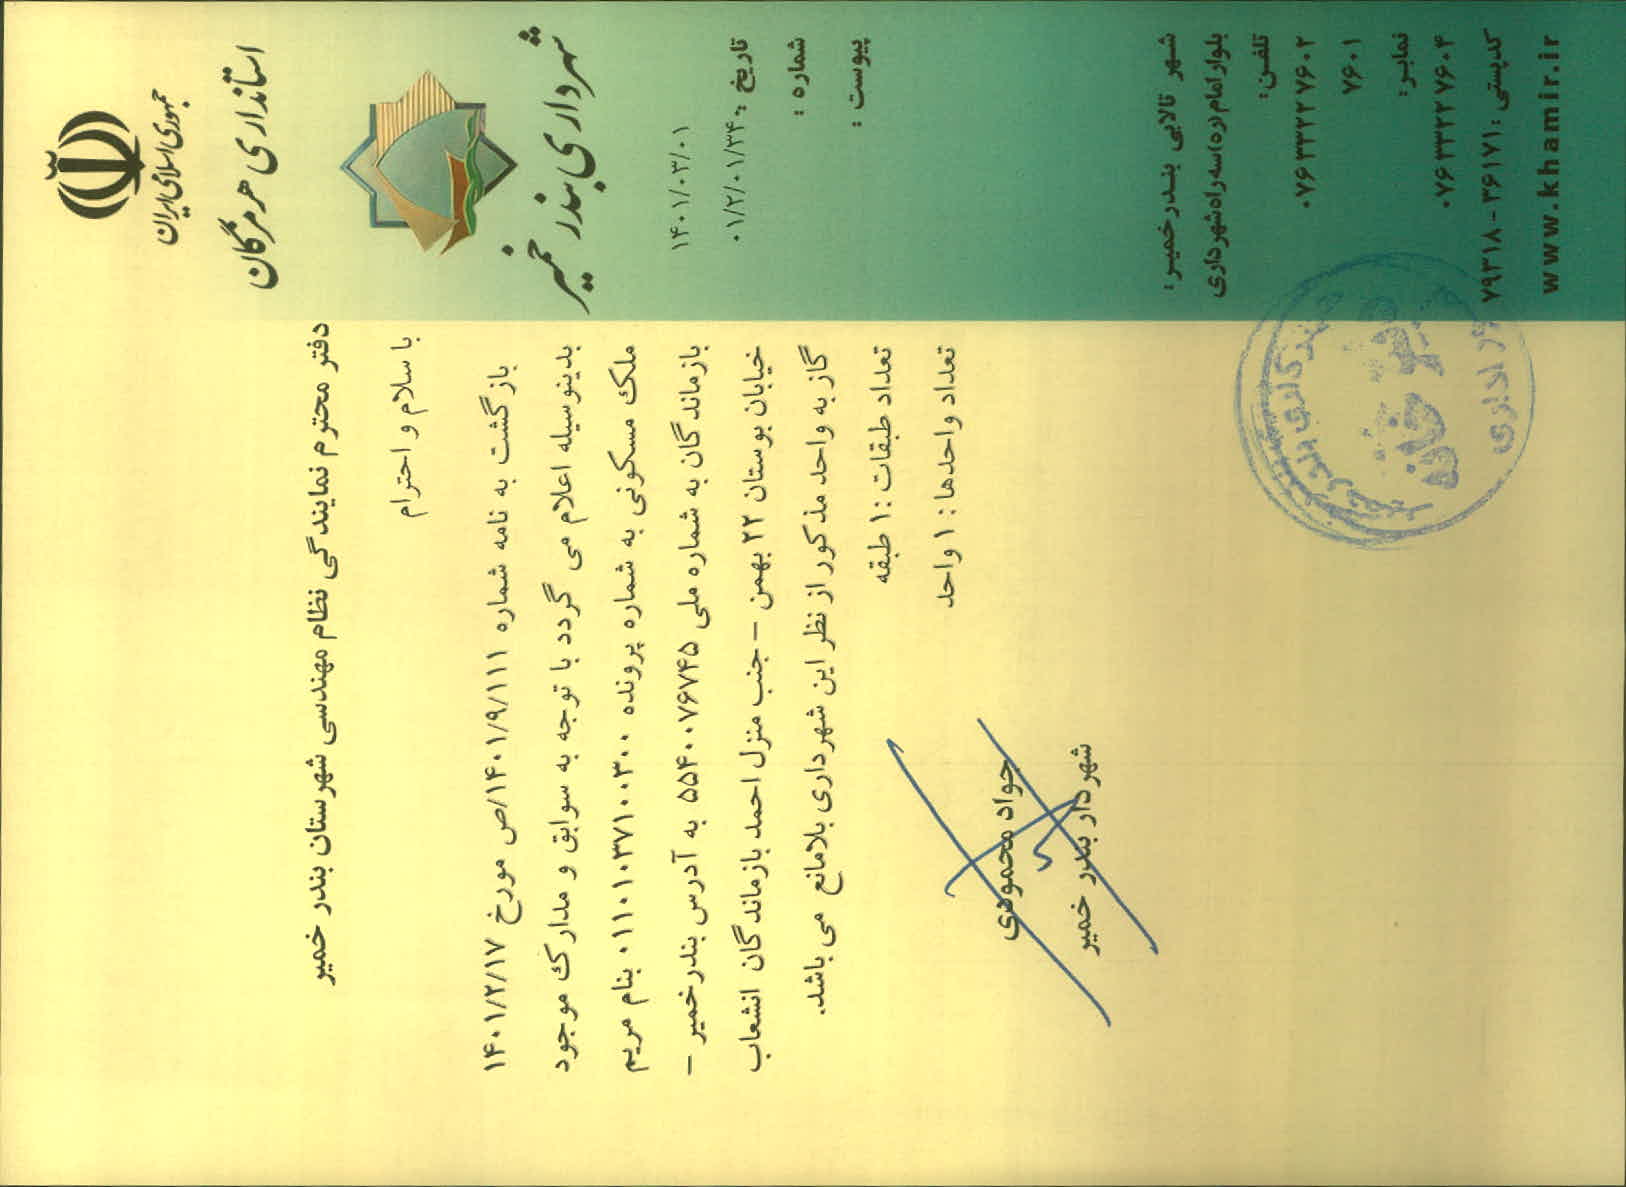 جمهوری اسلامی ایران
استانداری هرمزگان
شهرداری بندر خمیر
۱۴۰۱/۰۳/۰۱
تاریخ :
۰۱/۲/۰۱/۳۴۰
شماره :
پیوست :
دفتر محترم نمایندگی نظام مهندسی شهرستان بندر خمیر
با سلام و احترام
بازگشت به نامه شماره ۱۴۰۱/۹/۱۱۱/ص مورخ ۱۴۰۱/۲/۱۷
بدینوسیله اعلام می گردد با توجه به سوابق و مدارک موجود
ملک مسکونی به شماره پرونده ۰۱۱۰۱۰۳۷۱۰۰۳۰۰ بنام مریم
بازماندگان به شماره ملی ۵۵۴۰۰۷۶۷۴۵ به آدرس بندرخمیر –
خیابان بوستان ۲۲ بهمن – جنب منزل احمد بازماندگان انشعاب
گاز به واحد مذکور از نظر این شهرداری بلامانع می باشد.
تعداد طبقات :۱ طبقه
تعداد واحدها : ۱ واحد
جواد محمودی
شهردار بندر خمیر
دبیرخانه
امور اداری
شهر تالابی بندرخمیر:
بلوار امام(ره)سه راه شهرداری
تلفن:
۰۷۶۳۳۲۲۷۶۰۲
۷۶۰۱
نمابر:
۰۷۶۳۳۲۲۷۶۰۴
کدپستی :۳۶۱۷۱ - ۷۹۳۱۸
www.khamir.ir